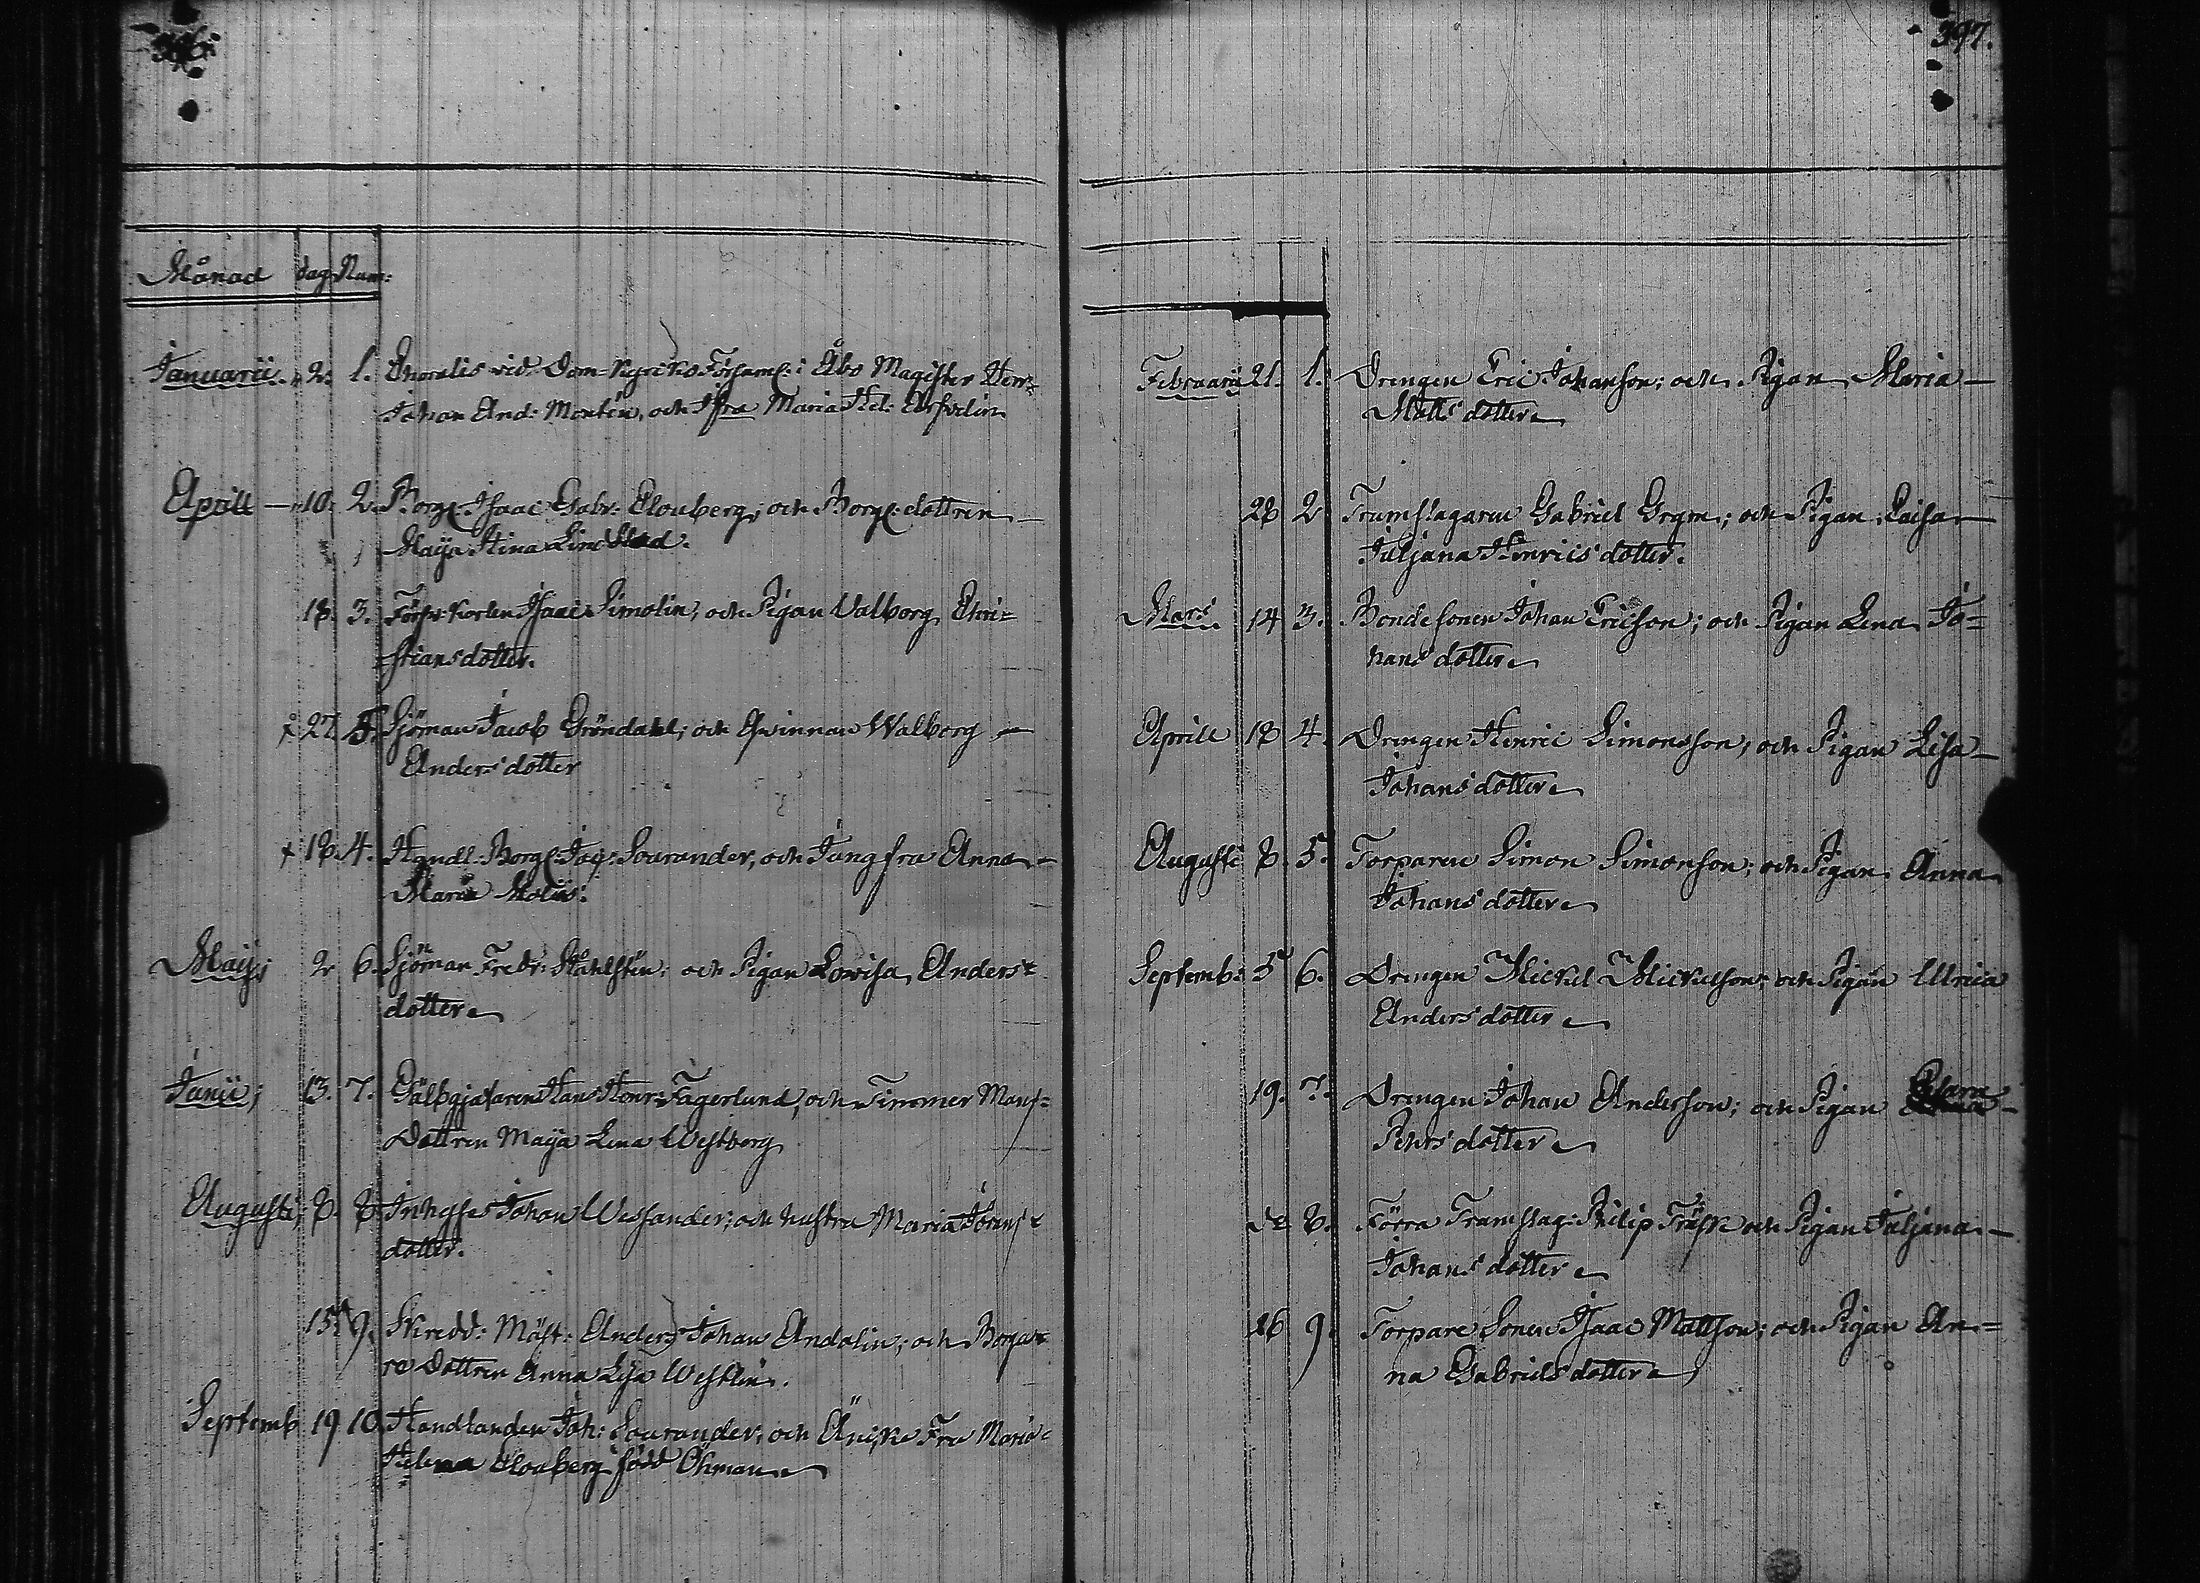 396.
Månad dag. Num:
Januarii. 2. 1. Choralis vid Dom-Kyrko Församl: i Åbo Magister Herr
Johan And: Montén, och Jfru Maria Hel: Arfvelin
Aprill — 10. 2. Borg: Isaac Gabr: Clouberg, och Borg: dottren —
Maija Stina Lindblad.
18. 3. Isaac Simolin, och Pigan Valborg Chri=
stiansdotter.
x 27. 5. Sjöman Jacob Gröndahl; och Qvinnan Walborg —
Andersdotter
x 18. 4. Handl: Borg: Jac: Sourander, och Jungfru Anna —
Maria Moliis:
Maij; 2 6. Sjöman Fredr: Ståhlsten; och Pigan Lovisa Anders=
dotter
Junii; 13. 7. Gälbgjutaren Hans Henr: Fagerlund, och Timmer Mans=
Dottren Maija Lena Westberg
Augusti; 8. 8. Inhyses Johan Wessander; och hustru Maria Jörans=
dotter.
15. 9. Skredd: Mäst: Anders Johan Andalin; och Borga=
re Dottren Anna Lisa Westlin.
Septemb 19 10. Handlanden Joh: Sourander, och Änke Fru Maria
Helena Clouberg född Öhman
397.
Februarii 21. 1. Drengen Eric Johanson; och Pigan Maria —
Mattsdotter
28 2. Trumslagaren Gabriel Grym; och Pigan Caisa —
Juljana Henricsdotter.
Mars 14 3. Bondesonen Johan Ericson; och Pigan Lena Jo=
hansdotter
Aprill 18 4. Drengen Henric Simonsson; och Pigan Lisa —
Johansdotter
Augusti 8. 5. Torparen Simon Simonson; och Pigan Anna
Johansdotter
Septemb: 5 6. Drengen Mickel Mickelson; och Pigan Ulrica
Andersdotter
19. 7. Drengen Johan Anderson; och Pigan Clara —
Pehrsdotter
8. Förra Trumslag: Philip Träsk och Pigan Juljana —
Johansdotter
26 9. Torpare Sonen Isaac Mattson; och Pigan An=
na Gabrielsdotter